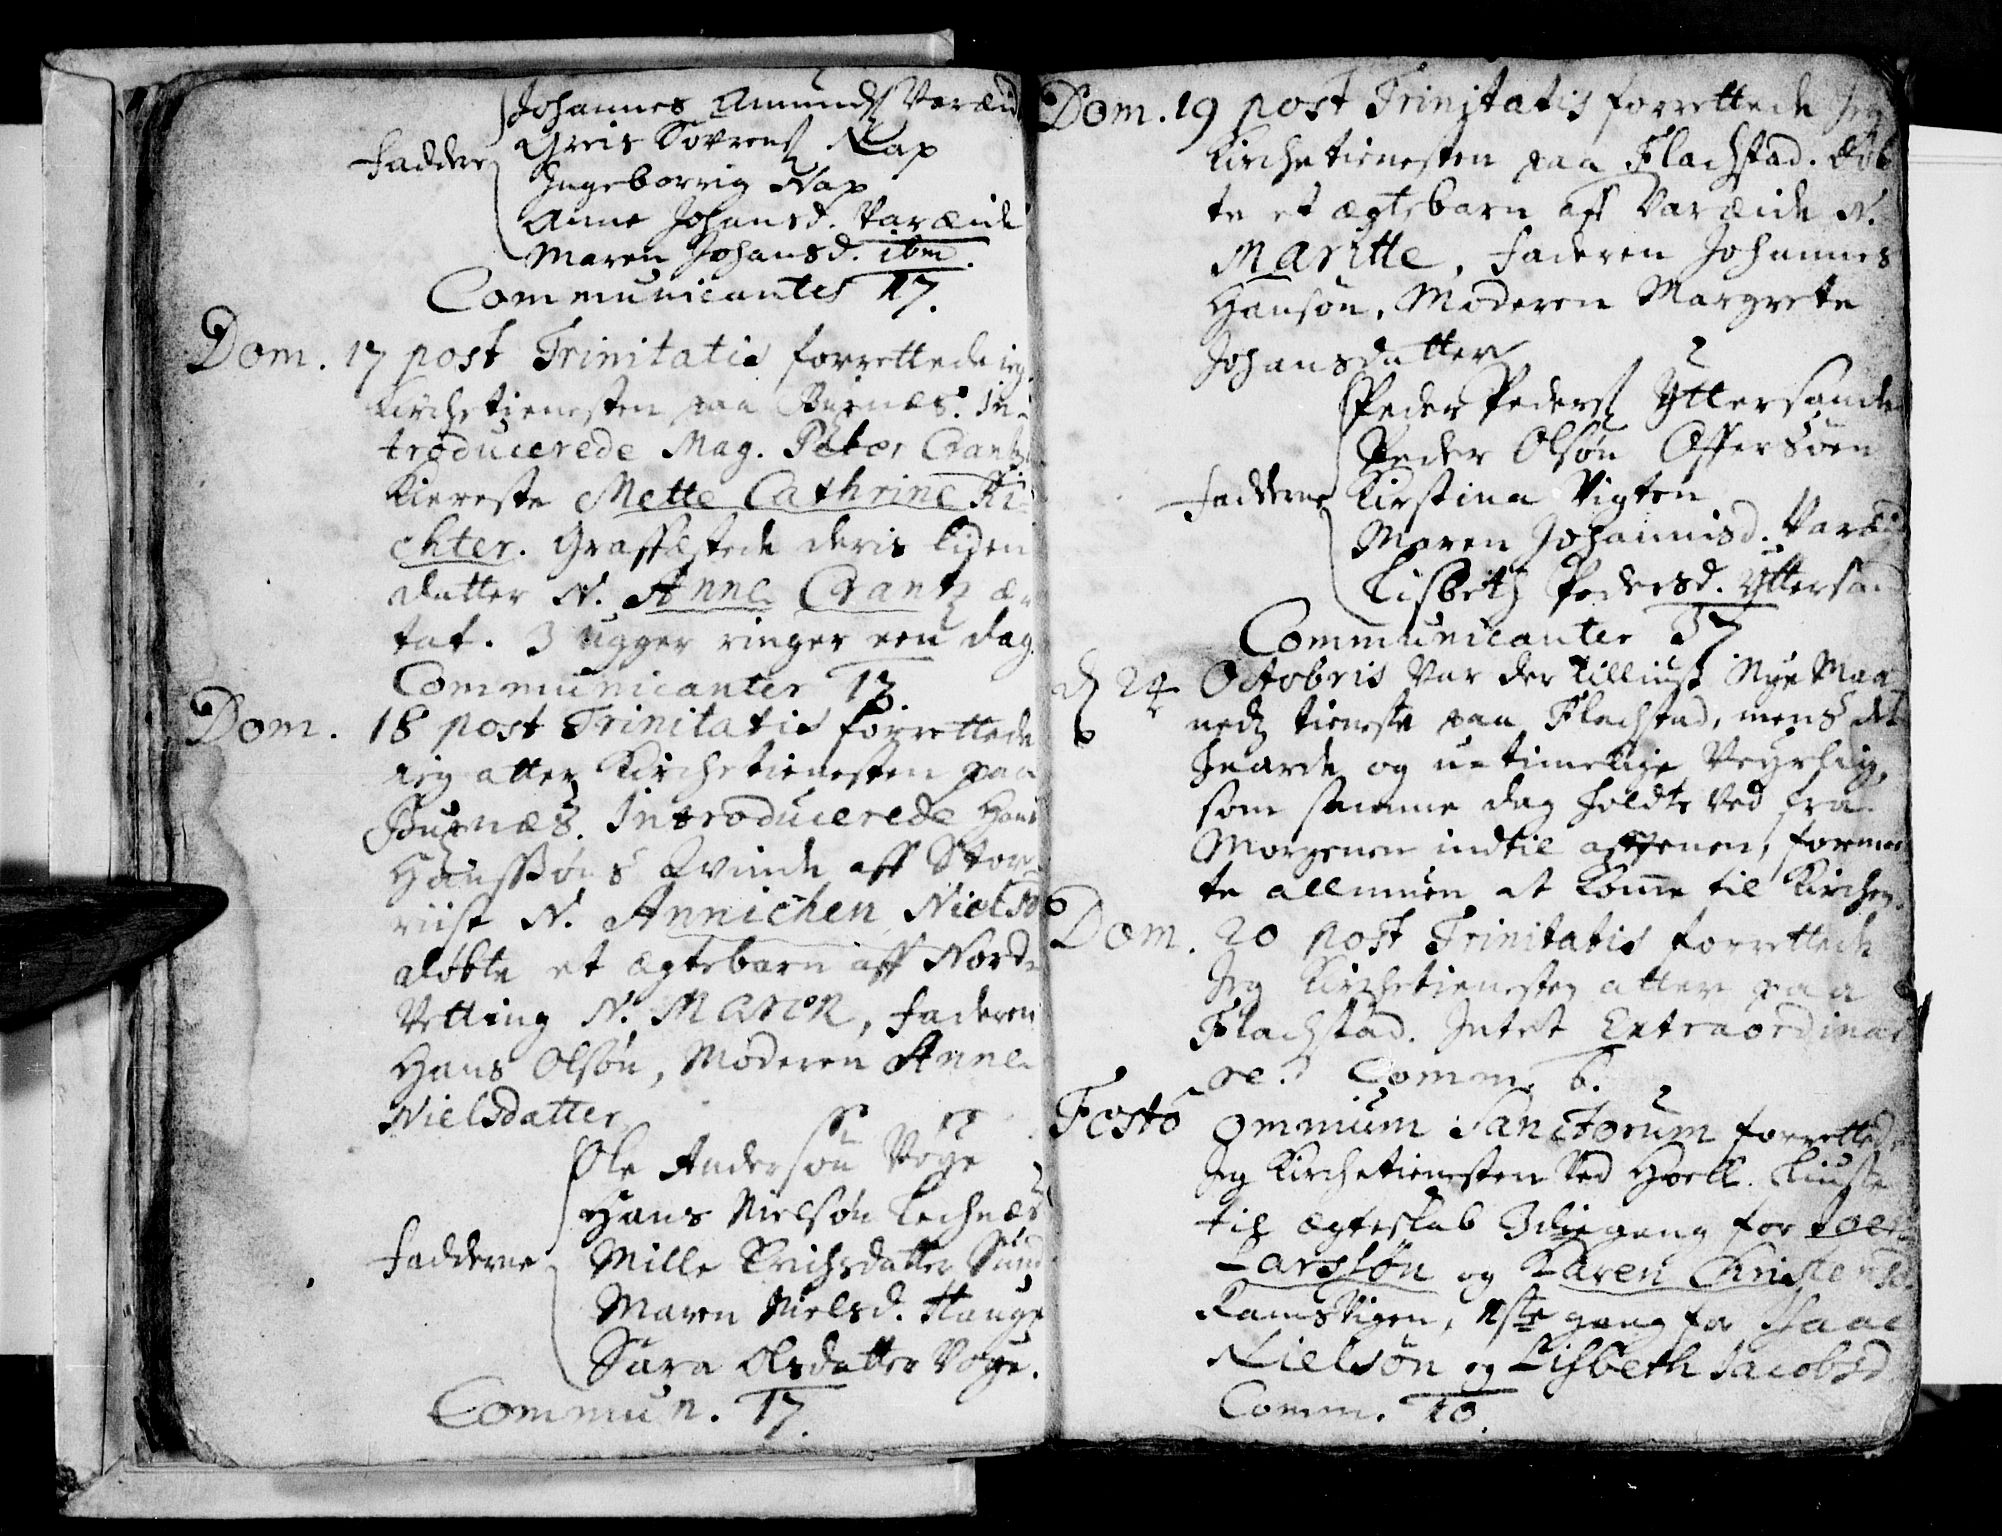 Johannes Amundß Varæid
Greis Søvrenß Nap
Faddere
Ingeborrig Nap
Anne Johansd. Varæide
Maren Johansd. ibm.
Communicantes 17.
Dom. 17 post Trinitatis forrettede ieg
Kirchetienesten paa Buxnæs. In-
troducerede Mag. Peter Crantz
Kiereste Mette Cathrine Ri-
chter. Graffæstede deris liden
datter N. Anne Crantz æ-
tat. 3 ugger ringer een dag
Communicanter 13
Dom. 18 post Trinitatis forrettede
ieg atter Kirchetienesten paa
Buxnæs. Introducerede Hans
Hanssøns Qvinde aff Stor-
riise N. Annichen Nielsd
døbte et ægtebarn aff Nord-
Vetting N. Maren, faderen
Hans Olsøn, Moderen Anne
Nielsdatter
Ole Andersøn Voge
Hans Nielsøn Lechnæs
Fadderne
Mille Erichsdatter Sund
Maren Nielsd. Hauge
Sara Olsdatter Voge.
Commun. 17.
Dom. 19 post Trinitatis forrettede Jeg
Kirchetienesten paa Flachstad. døb
te et ægtebarn aff Varæide N.
Maritte, faderen Johannes
Hansøn, Moderen Margrete
Johansdatter
Peder Pederß Yttersande
Peder Olsøn Offersøen
Fadderne
Kirstina Vigten
Maren Johannisd. Varæid
Lisbeth Pedersd. Yttersand
Communicanter 37
d 24 Octobris var der tilliust Nye Maa
nedß tieneste paa Flachstad, mens det
haarde og uetimelige Veyrlig,
som samme dag holdte ved fra
Morgenen indtil afftenen, formeente
allmuen at komme til Kirchen.
Dom. 20 post Trinitatis forrettede
Jeg Kirchetienesten atter paa
Flachstad. Intet Extraordinar
re. Comm. 6.
Festo omnium Sanctorum forrettede
Jeg Kirchetienesten ved Hoell. Liuste
til ægteskab 3die gang for Joen
Larssøn og Karen Christensd.
Ramsvigen, 1ste gang for Isaac
Nielsøn og Lisbeth Jacobsd
Comm. 10.